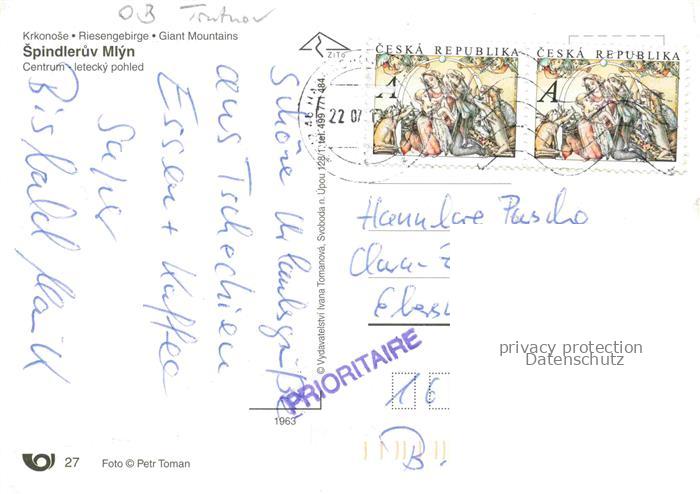 OB Trutnov
Krkonoše • Riesengebirge • Giant Mountains
Špindlerův Mlýn
Centrum - letecký pohled
ŽiTo
ČESKÁ REPUBLIKA
A
ČESKÁ REPUBLIKA
A
22 07
Schöne Urlaubsgrüße
aus Tschechien
Essen + Kaffee
Super
Bis bald Maik
© Vydavatelství Ivana Tomanová, Svoboda n. Úpou 128/1, tel. 499 771 484
Hannelore
Clara-Z
Ebersw
PRIORITAIRE
privacy protection
Datenschutz
16
B.
1963
27 Foto © Petr Toman